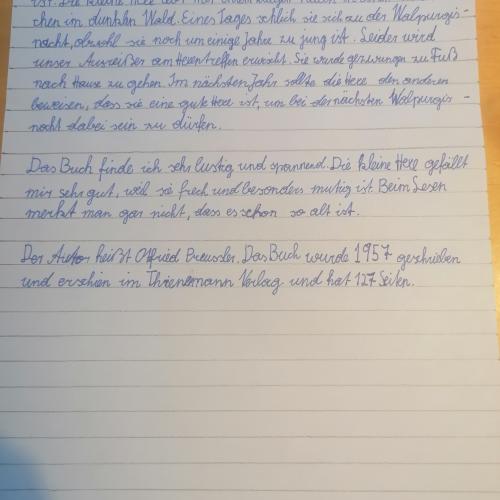 ist. Die kleine Hexe
chen im dunklen Wald. Eines Tages schlich sie sich zu der Walpurgis-
nacht, obwohl sie noch um einige Jahre zu jung ist. Leider wird
unser Ausreißer am Hexentreffen erwischt. Sie wurde gezwungen zu Fuß
nach Hause zu gehen. Im nächsten Jahr sollte die Hexe den anderen
beweisen, dass sie eine gute Hexe ist, um bei der nächsten Walpurgis-
nacht dabei sein zu dürfen.
Das Buch finde ich sehr lustig und spannend. Die kleine Hexe gefällt
mir sehr gut, weil sie frech und besonders mutig ist. Beim Lesen
merkt man gar nicht, dass es schon so alt ist.
Der Autor heißt Otfried Preussler. Das Buch wurde 1957 geschrieben
und erschien im Thienemann Verlag und hat 127 Seiten.